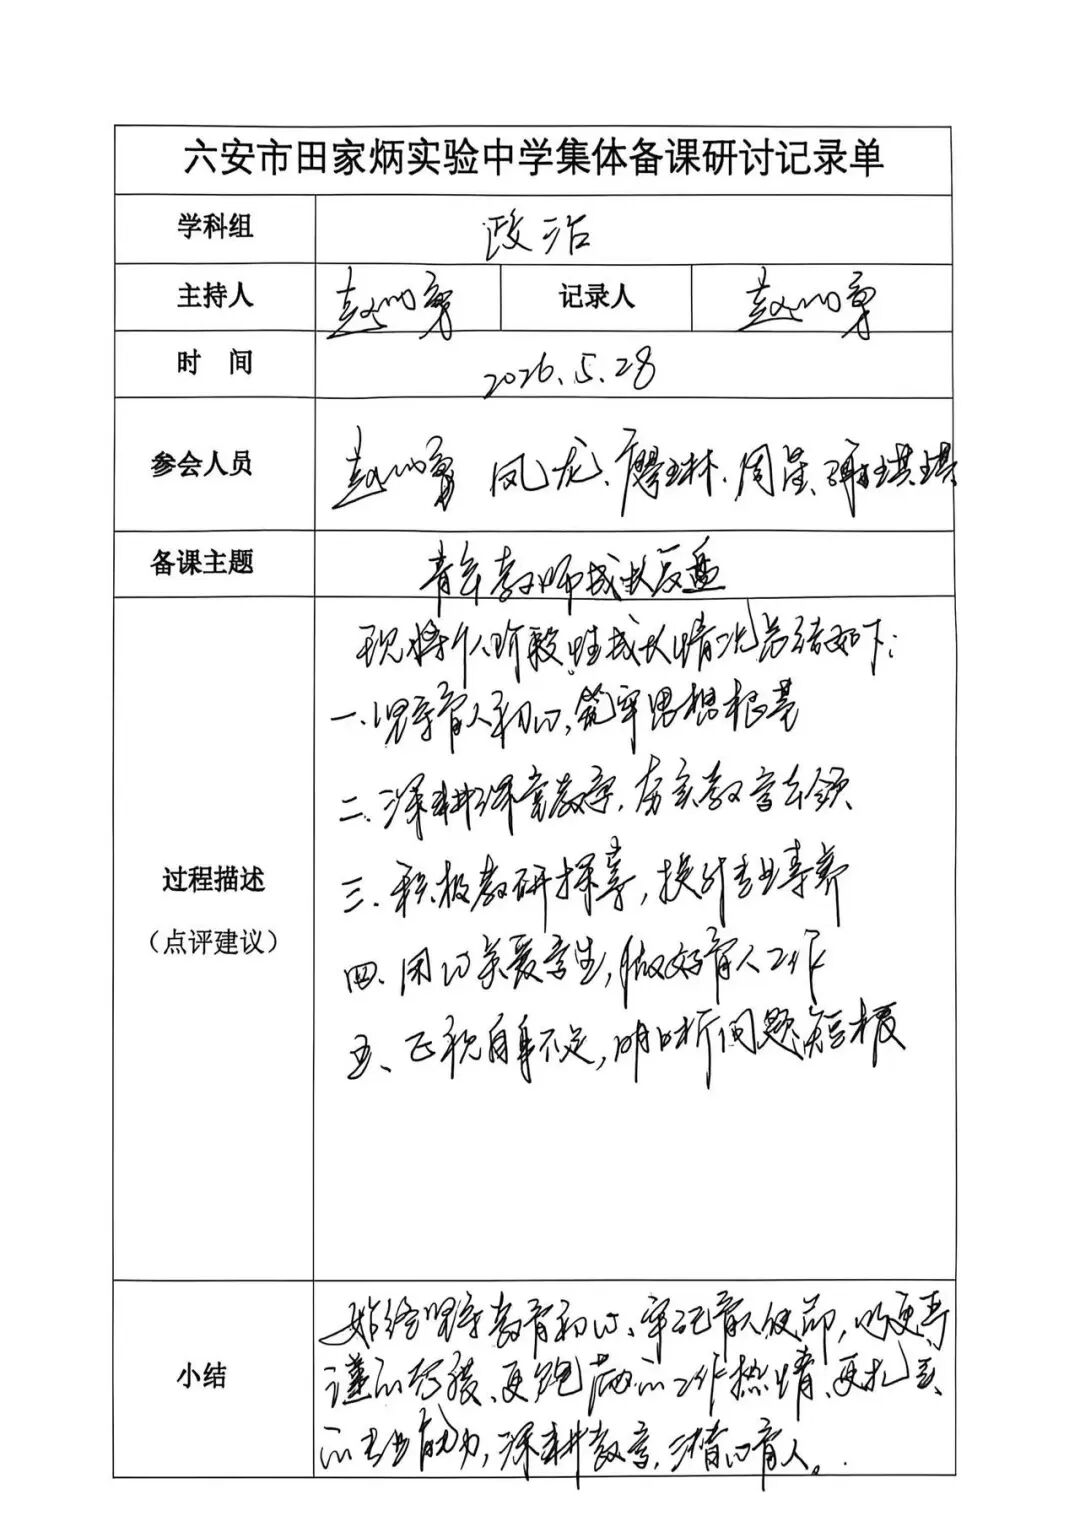 六安市田家炳实验中学集体备课研讨记录单
学科组 政治
主持人 赵 勇 记录人 赵 勇
时 间 2026.5.28
参会人员 赵 勇 凤龙、廖琳、周星、谢琪琪
备课主题 青年教师成长反思
现将个人阶段性成长情况总结如下：
一、坚守育人初心，筑牢思想根基
二、深耕课堂教学，夯实教育本领
过程描述
三、积极教研探索，提升专业素养
（点评建议）
四、用心关爱学生，做好育人工作
五、正视自身不足，明晰问题短板
始终坚守教育初心、牢记育人使命，以更严
小结
谨的态度、更饱满的工作热情、更扎实
的专业能力，深耕教育，潜心育人。